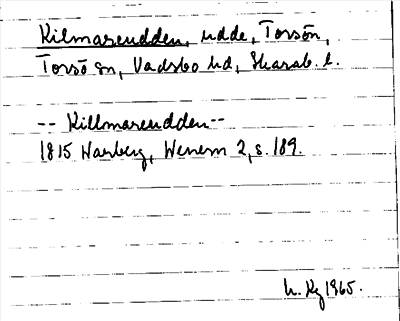 Kilmareudden, udde, Torsön,
Torsö sn, Vadsbo hd, Skarab. l.
-- Killmareudden --
1815 Warberg, Wenern 2, s. 189.
1965.